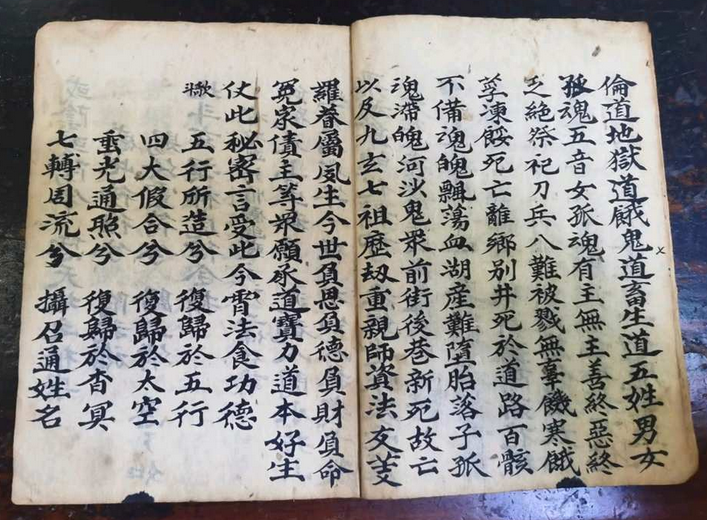 倫道地獄道餓鬼道畜生道五姓男女
孤魂五音女孤魂有主無主善終惡終
乏絶祭祀刀兵八難被戮無辜饑寒餓
莩凍餒死亡離鄉別井死於道路百骸
不備魂魄飄蕩血湖產難墮胎落子孤
魂滯魄河沙鬼眾前街後巷新死故亡
以及九玄七祖歷劫重親師資法友
羅眷屬夙生今世負恩負德負財負命
冤家債主等眾願承道寶力道本好生
仗此秘密言受此今宵法食功德
五行所造兮 復歸於五行
四大假合兮 復歸於太空
垂光通照兮 復歸於杳冥
七轉周流兮 攝召通姓名